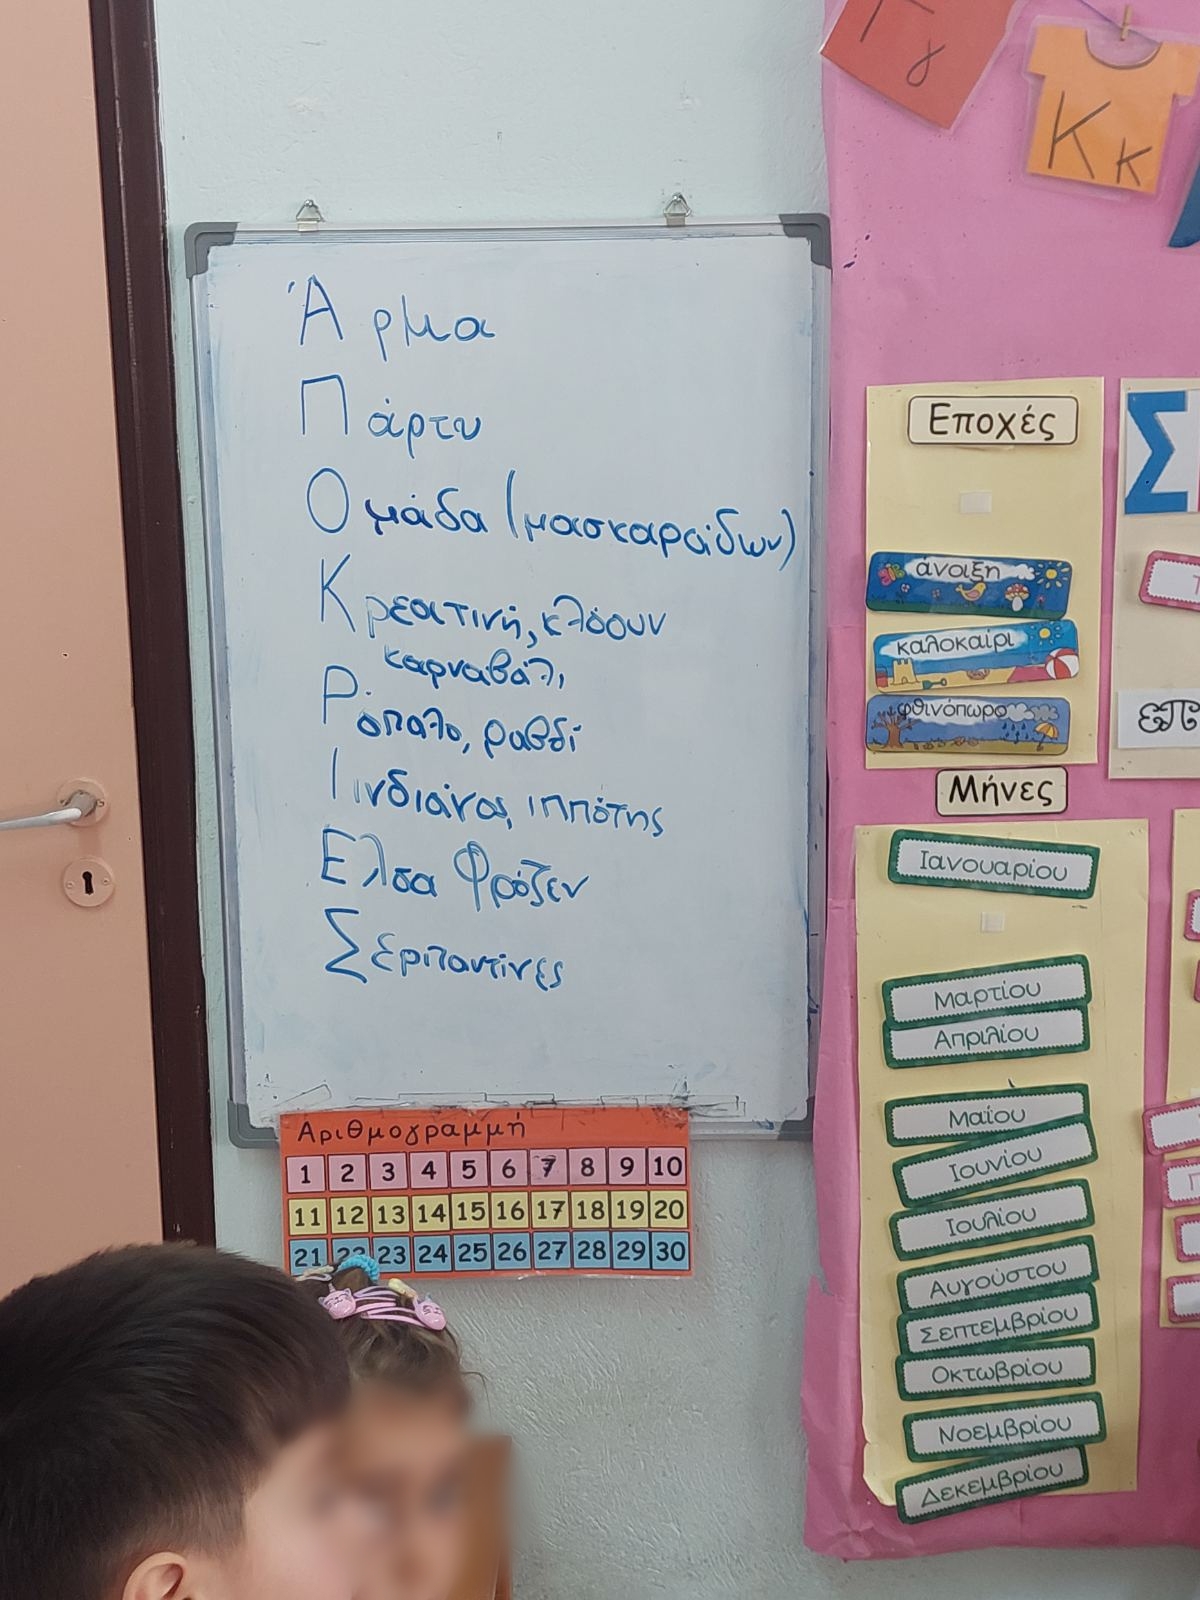 Άρμα
Πάρτυ
Ομάδα (μασκαράδων)
Κρεατινή, κλόουν
καρναβάλι
Ρόπαλο, ραβδί
Ιινδιάνος, ιππότης
Ελσα Φρόζεν
Σερπαντίνες
Αριθμογραμμή
1 2 3 4 5 6 7 8 9 10
11 12 13 14 15 16 17 18 19 20
21 22 23 24 25 26 27 28 29 30
Γ γ
Κ κ
Εποχές
άνοιξη
καλοκαίρι
φθινόπωρο
Μήνες
Ιανουαρίου
Μαρτίου
Απριλίου
Μαΐου
Ιουνίου
Ιουλίου
Αυγούστου
Σεπτεμβρίου
Οκτωβρίου
Νοεμβρίου
Δεκεμβρίου
Σ
επ